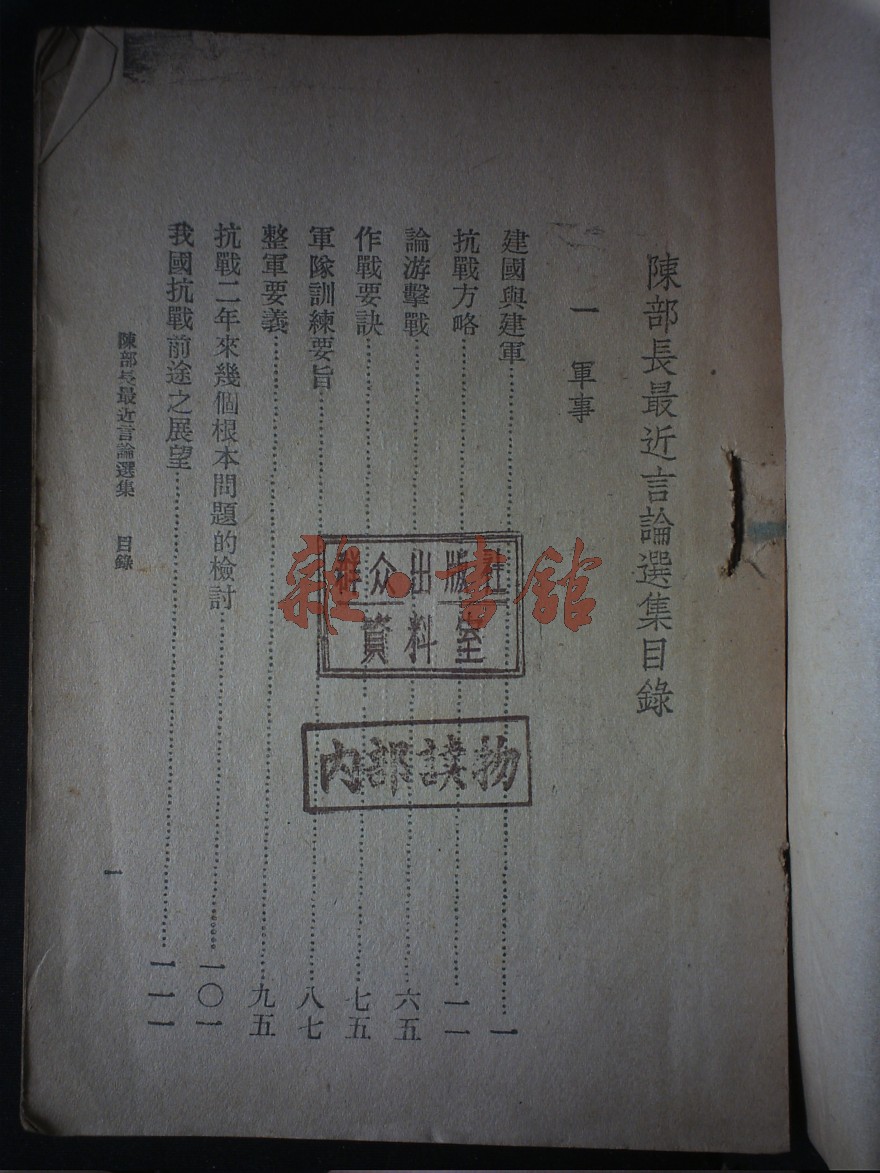 陳部長最近言論選集目錄
一 軍事
建國與建軍……一
抗戰方略……一一
論游擊戰……六五
作戰要訣……七五
軍隊訓練要旨……八七
整軍要義……九五
抗戰二年來幾個根本問題的檢討……一〇一
我國抗戰前途之展望……一一一
陳部長最近言論選集 目錄
一
群众出版社
資料室
内部读物
雜·書館